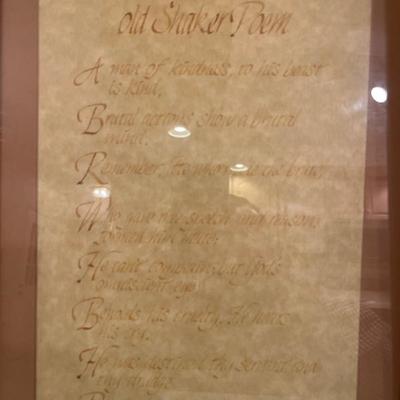 old Shaker Poem
A man of kindness, to his beast
is kind,
Brutal actions show a brutal
mind.
Remember, He who made the brute,
Who gave thee speech and reason,
formed him mute;
He can't complain, but God's
omniscient eye
Beholds his cruelty. He hears
his cry.
He was destined thy servant and
thy drudge